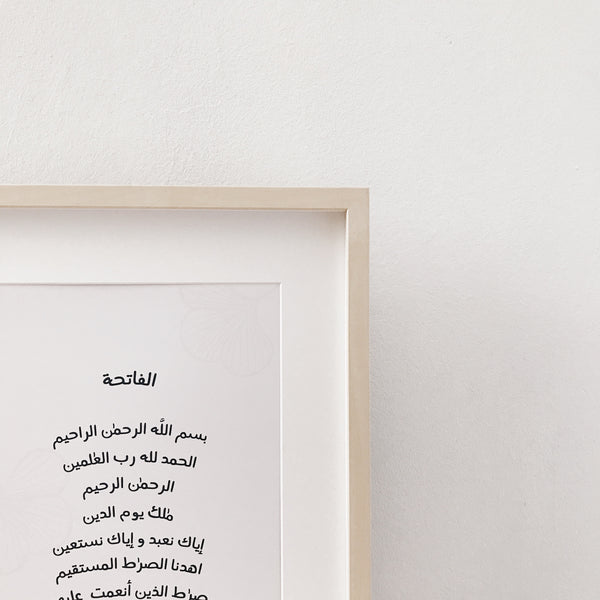 الفاتحة
بسم اللّه الرحمٰن الراحيم
الحمد لله رب العٰلمين
الرحمٰن الرحيم
مٰلك يوم الدين
إياك نعبد و إياك نستعين
اهدنا الصرٰط المستقيم
صرٰط الذين أنعمت عليهم